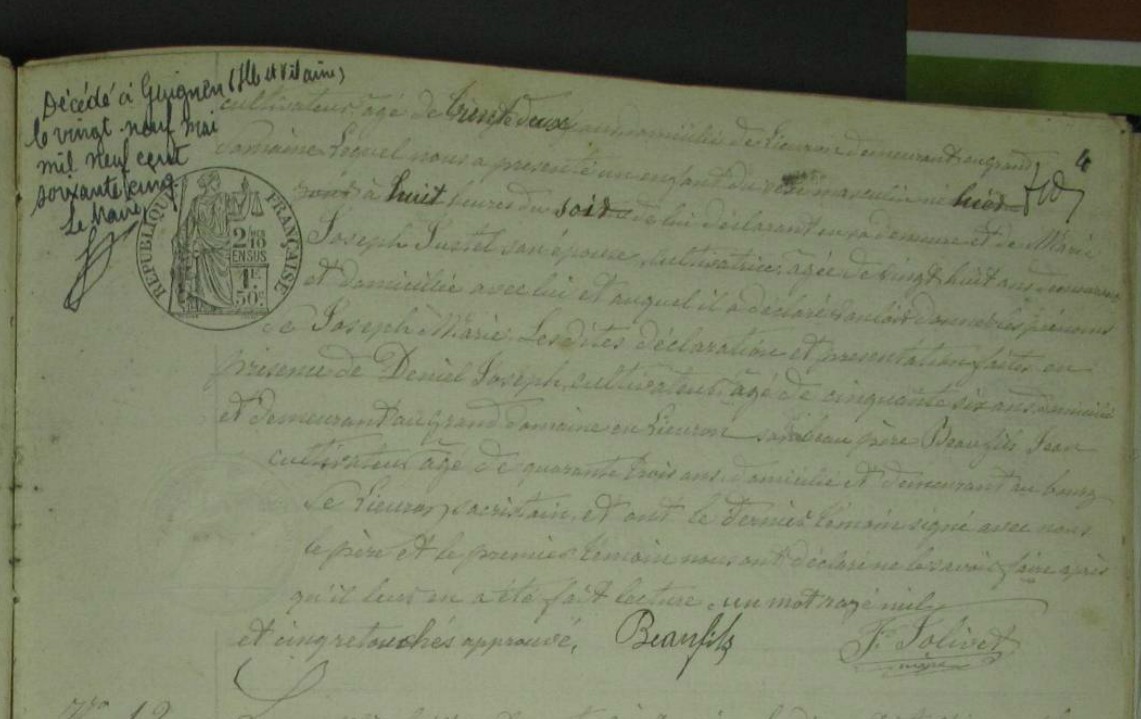 Décédé à Guignen (Ille et Vilaine)
le vingt neuf mai
mil neuf cent
soixante cinq.
Le Maire,
4
RÉPUBLIQUE FRANÇAISE
2/10 EN SUS
1F. 50c
cultivateur, âgé de trente deux ans domicilié de Lieuron demeurant au grand
domaine Lequel nous a présenté un enfant du sexe masculin né hier
à huit heures du soir de lui déclarant en sa demeure et de Marie
Joseph son épouse, cultivatrice, âgée de vingt huit ans demeurant
et domiciliée avec lui et auquel il a déclaré vouloir donner les prénoms
de Joseph Marie. Lesdites déclaration et présentation faites en
présence de Deniel Joseph, cultivateur, âgé de cinquante six ans domicilié
et demeurant au grand domaine en Lieuron beau père Beaufils Jean
cultivateur âgé de quarante trois ans, domicilié et demeurant au bourg
de Lieuron, sacristain, et ont le dernier témoin signé avec nous
le père et le premier témoin nous ont déclaré ne le savoir faire après
qu'il leur en a été fait lecture. un mot rayé nul
et cinq retouchés approuvé.
Beaufils
F. Jolivet
maire